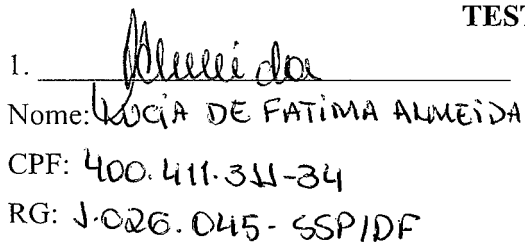 TEST
1. Almeida
Nome: LUCIA DE FATIMA ALMEIDA
CPF: 400.411.311-34
RG: 1.026.045 - SSP/DF